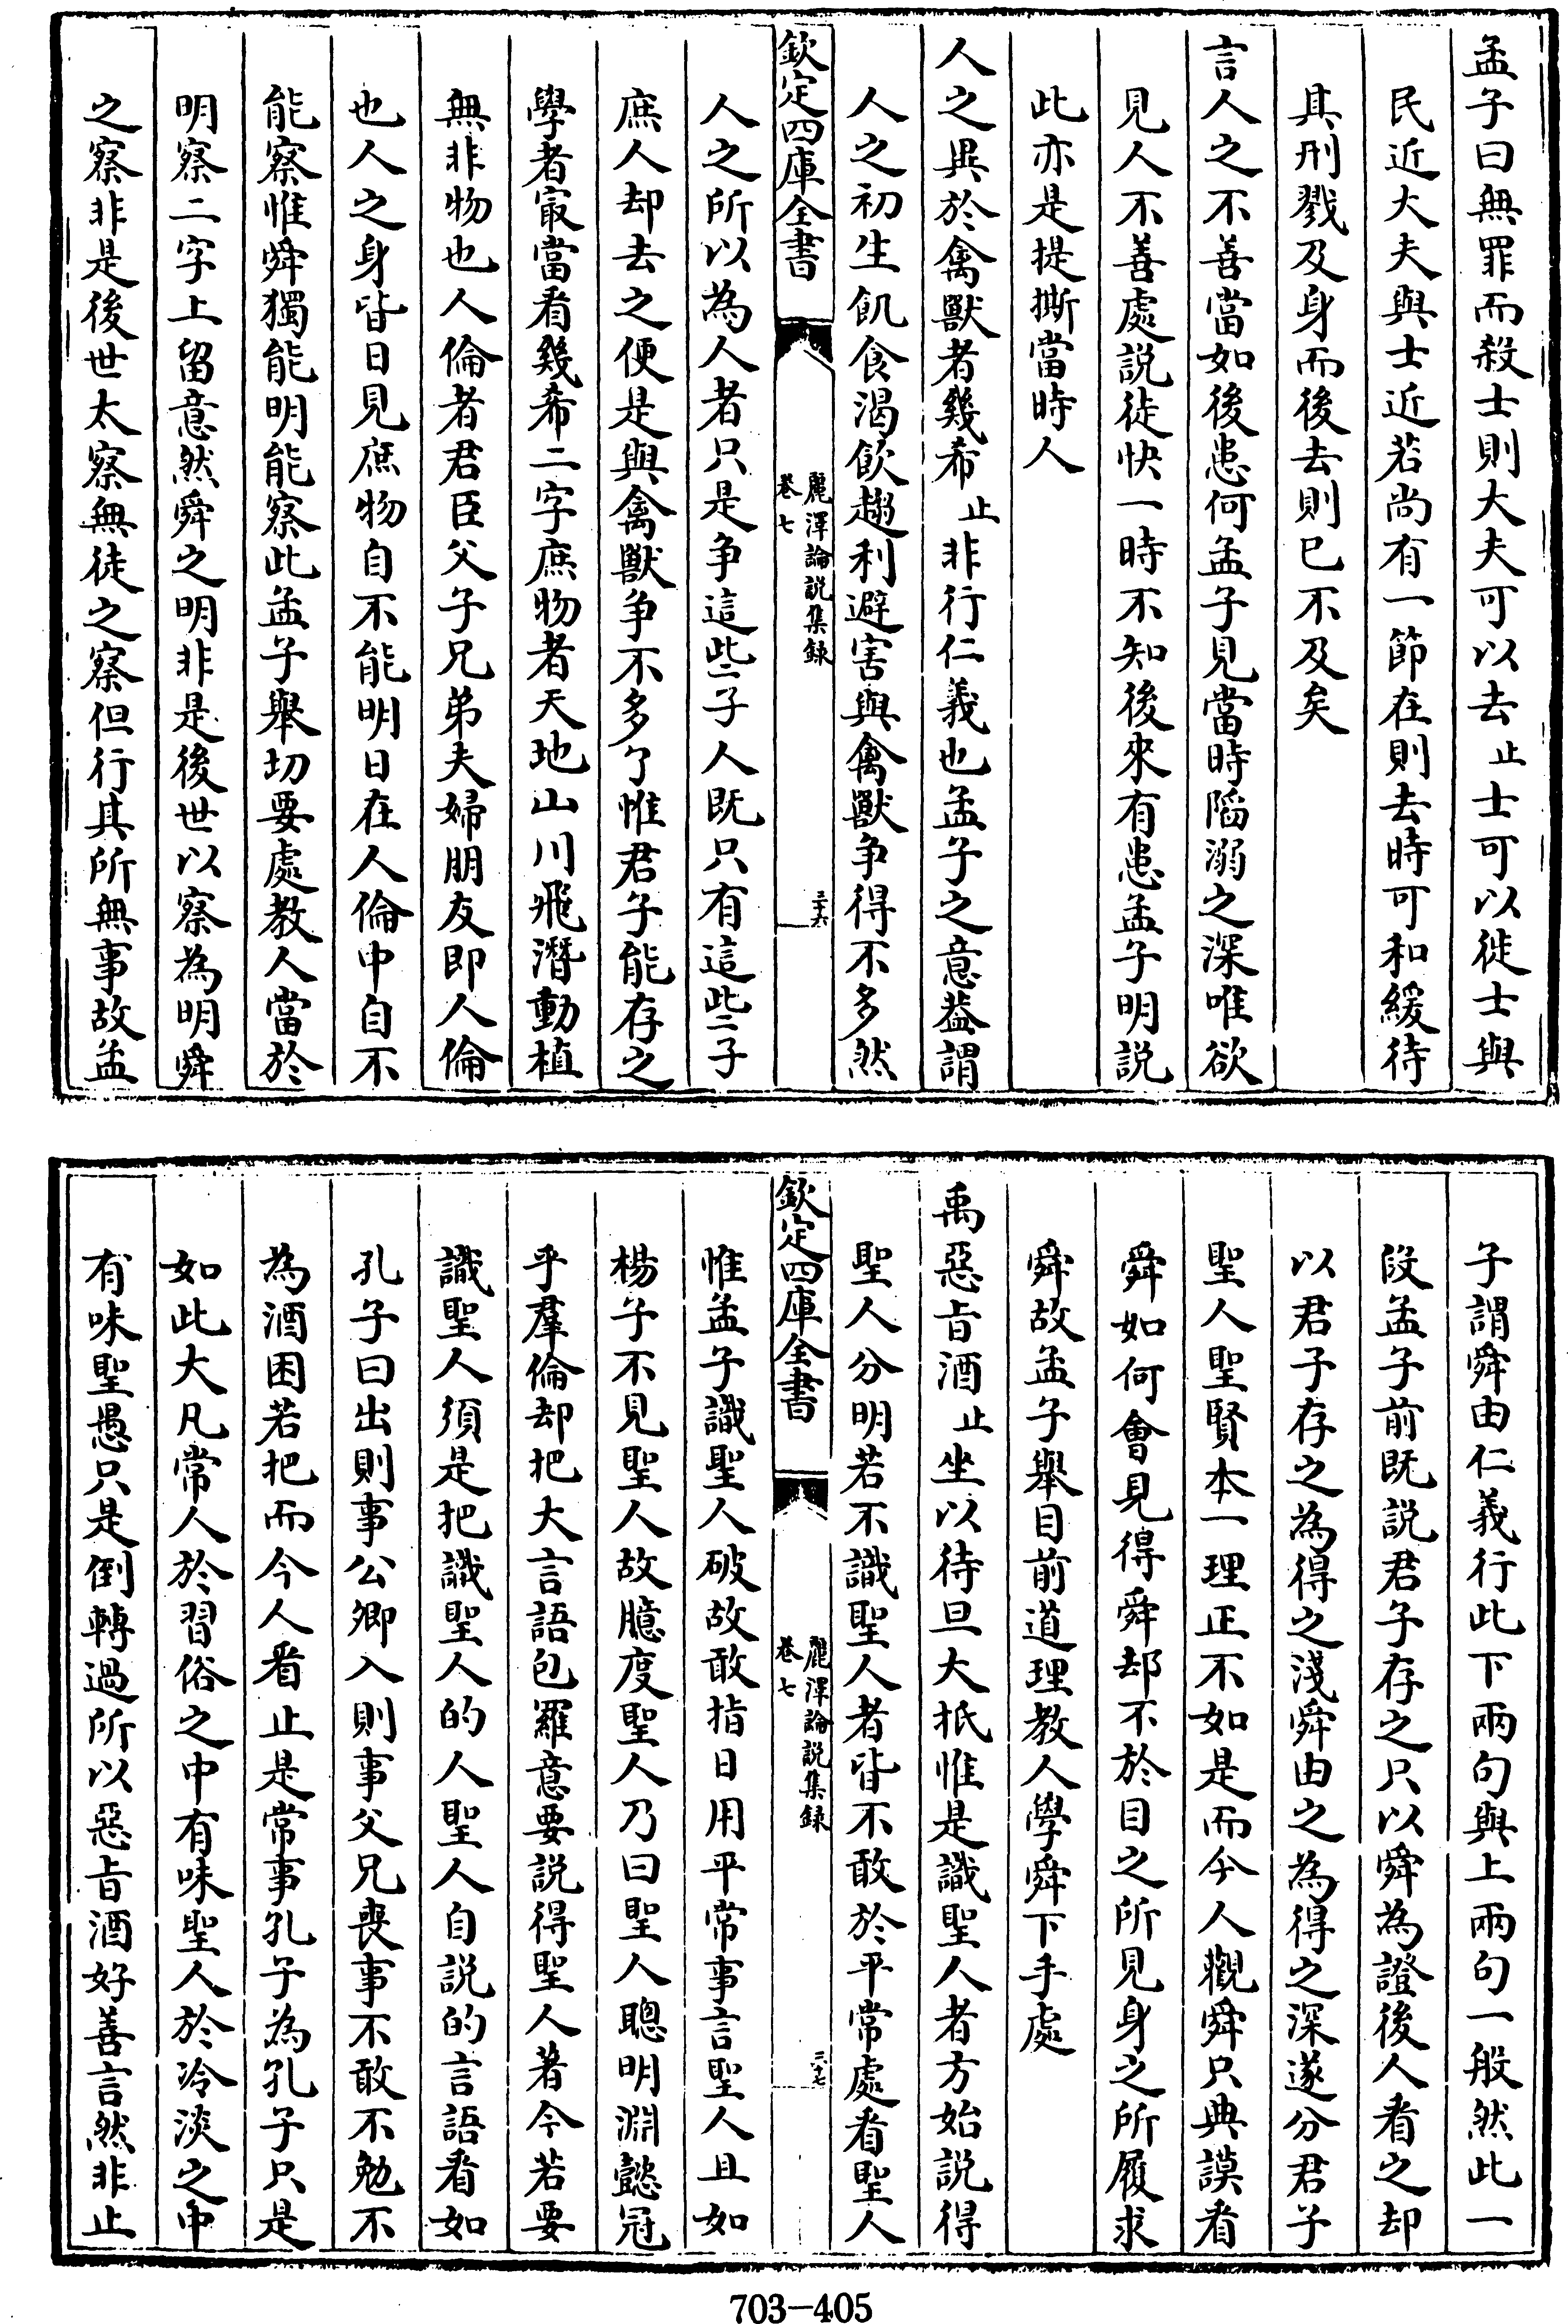 孟子曰無罪而殺士則大夫可以去止士可以徙士與
民近大夫與士近若尚有一節在則去時可和緩待
其刑戮及身而後去則已不及矣
言人之不善當如後患何孟子見當時陷溺之深唯欲
見人不善處説徒快一時不知後來有患孟子明説
此亦是提撕當時人
人之異於禽獸者幾希止非行仁義也孟子之意葢謂
人之初生飢食渴飲趨利避害與禽獸争得不多然
欽定四庫全書
麗澤論説集録
卷七
三十六
人之所以為人者只是争這些子人既只有這些子
庶人却去之便是與禽獸争不多了惟君子能存之
學者宻當看幾希二字庶物者天地山川飛潛動植
無非物也人倫者君臣父子兄弟夫婦朋友即人倫
也人之身皆日見庶物自不能明日在人倫中自不
能察惟舜獨能明能察此孟子舉切要處教人當於
明察二字上留意然舜之明非是後世以察為明舜
之察非是後世太察無徒之察但行其所無事故孟
子謂舜由仁義行此下兩句與上兩句一般然此一
段孟子前既説君子存之只以舜為證後人看之却
以君子存之為得之淺舜由之為得之深遂分君子
聖人聖賢本一理正不如是而今人觀舜只典謨看
舜如何會見得舜却不於目之所見身之所履求
舜故孟子舉目前道理教人學舜下手處
禹惡旨酒止坐以待旦大抵惟是識聖人者方始説得
聖人分明若不識聖人者皆不敢於平常處看聖人
欽定四庫全書
麗澤論説集録
卷七
三十七
惟孟子識聖人破故敢指日用平常事言聖人且如
楊子不見聖人故臆度聖人乃曰聖人聰明淵懿冠
乎羣倫却把大言語包羅意要説得聖人著今若要
識聖人須是把識聖人的人聖人自説的言語看如
孔子曰出則事公卿入則事父兄喪事不敢不勉不
為酒困若把而今人看止是常事孔子為孔子只是
如此大凡常人於習俗之中有味聖人於冷淡之中
有味聖愚只是倒轉過所以惡旨酒好善言然非止
703-405